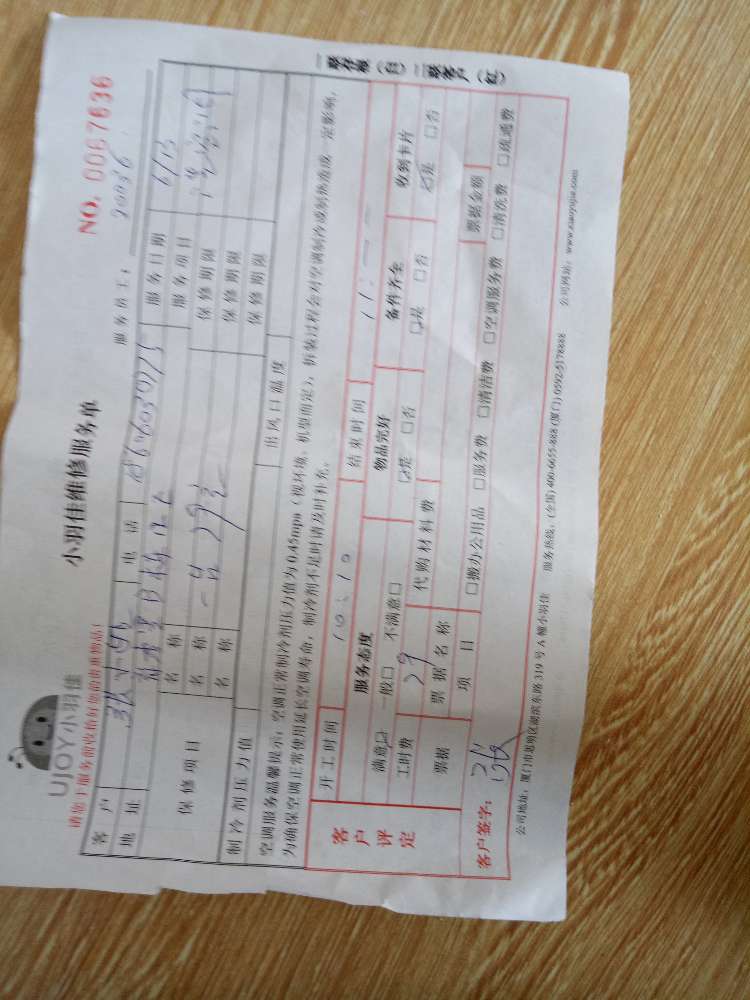 UJOY小羽佳
小羽佳维修服务单
NO. 0067636
请您于服务前收拾好您的贵重物品!
服务员工: 90036
客户 电话 服务日期 6/13
地址 服务项目
保修项目 名称 保修期限
名称 保修期限
名称 保修期限
制冷剂压力值 出风口温度
空调服务温馨提示:空调正常制冷剂压力值为0.45mpa(视环境、机型而定),拆装过程会对空调制冷或制热造成一定影响,
为确保空调正常使用延长空调寿命,制冷剂不足时请及时补充。
客户评定
开工时间 10:10 结束时间
服务态度 物品完好 备件齐全 收到卡片
满意☑ 一般□ 不满意□ ☑是 □否 ☑是 □否 ☑是 □否
工时费 29 代购材料费
票据 票据名称 票据金额
项目 □搬办公用品 □服务费 □清洁费 □空调服务费 □清洗费 □疏通费
客户签字:
公司地址:厦门市思明区湖滨东路319号A幢小羽佳 服务热线:(全国)400-6655-888 (厦门)0592-5178888 公司网站:www.xiaoyujia.com
一联存根(白)二联客户(红)